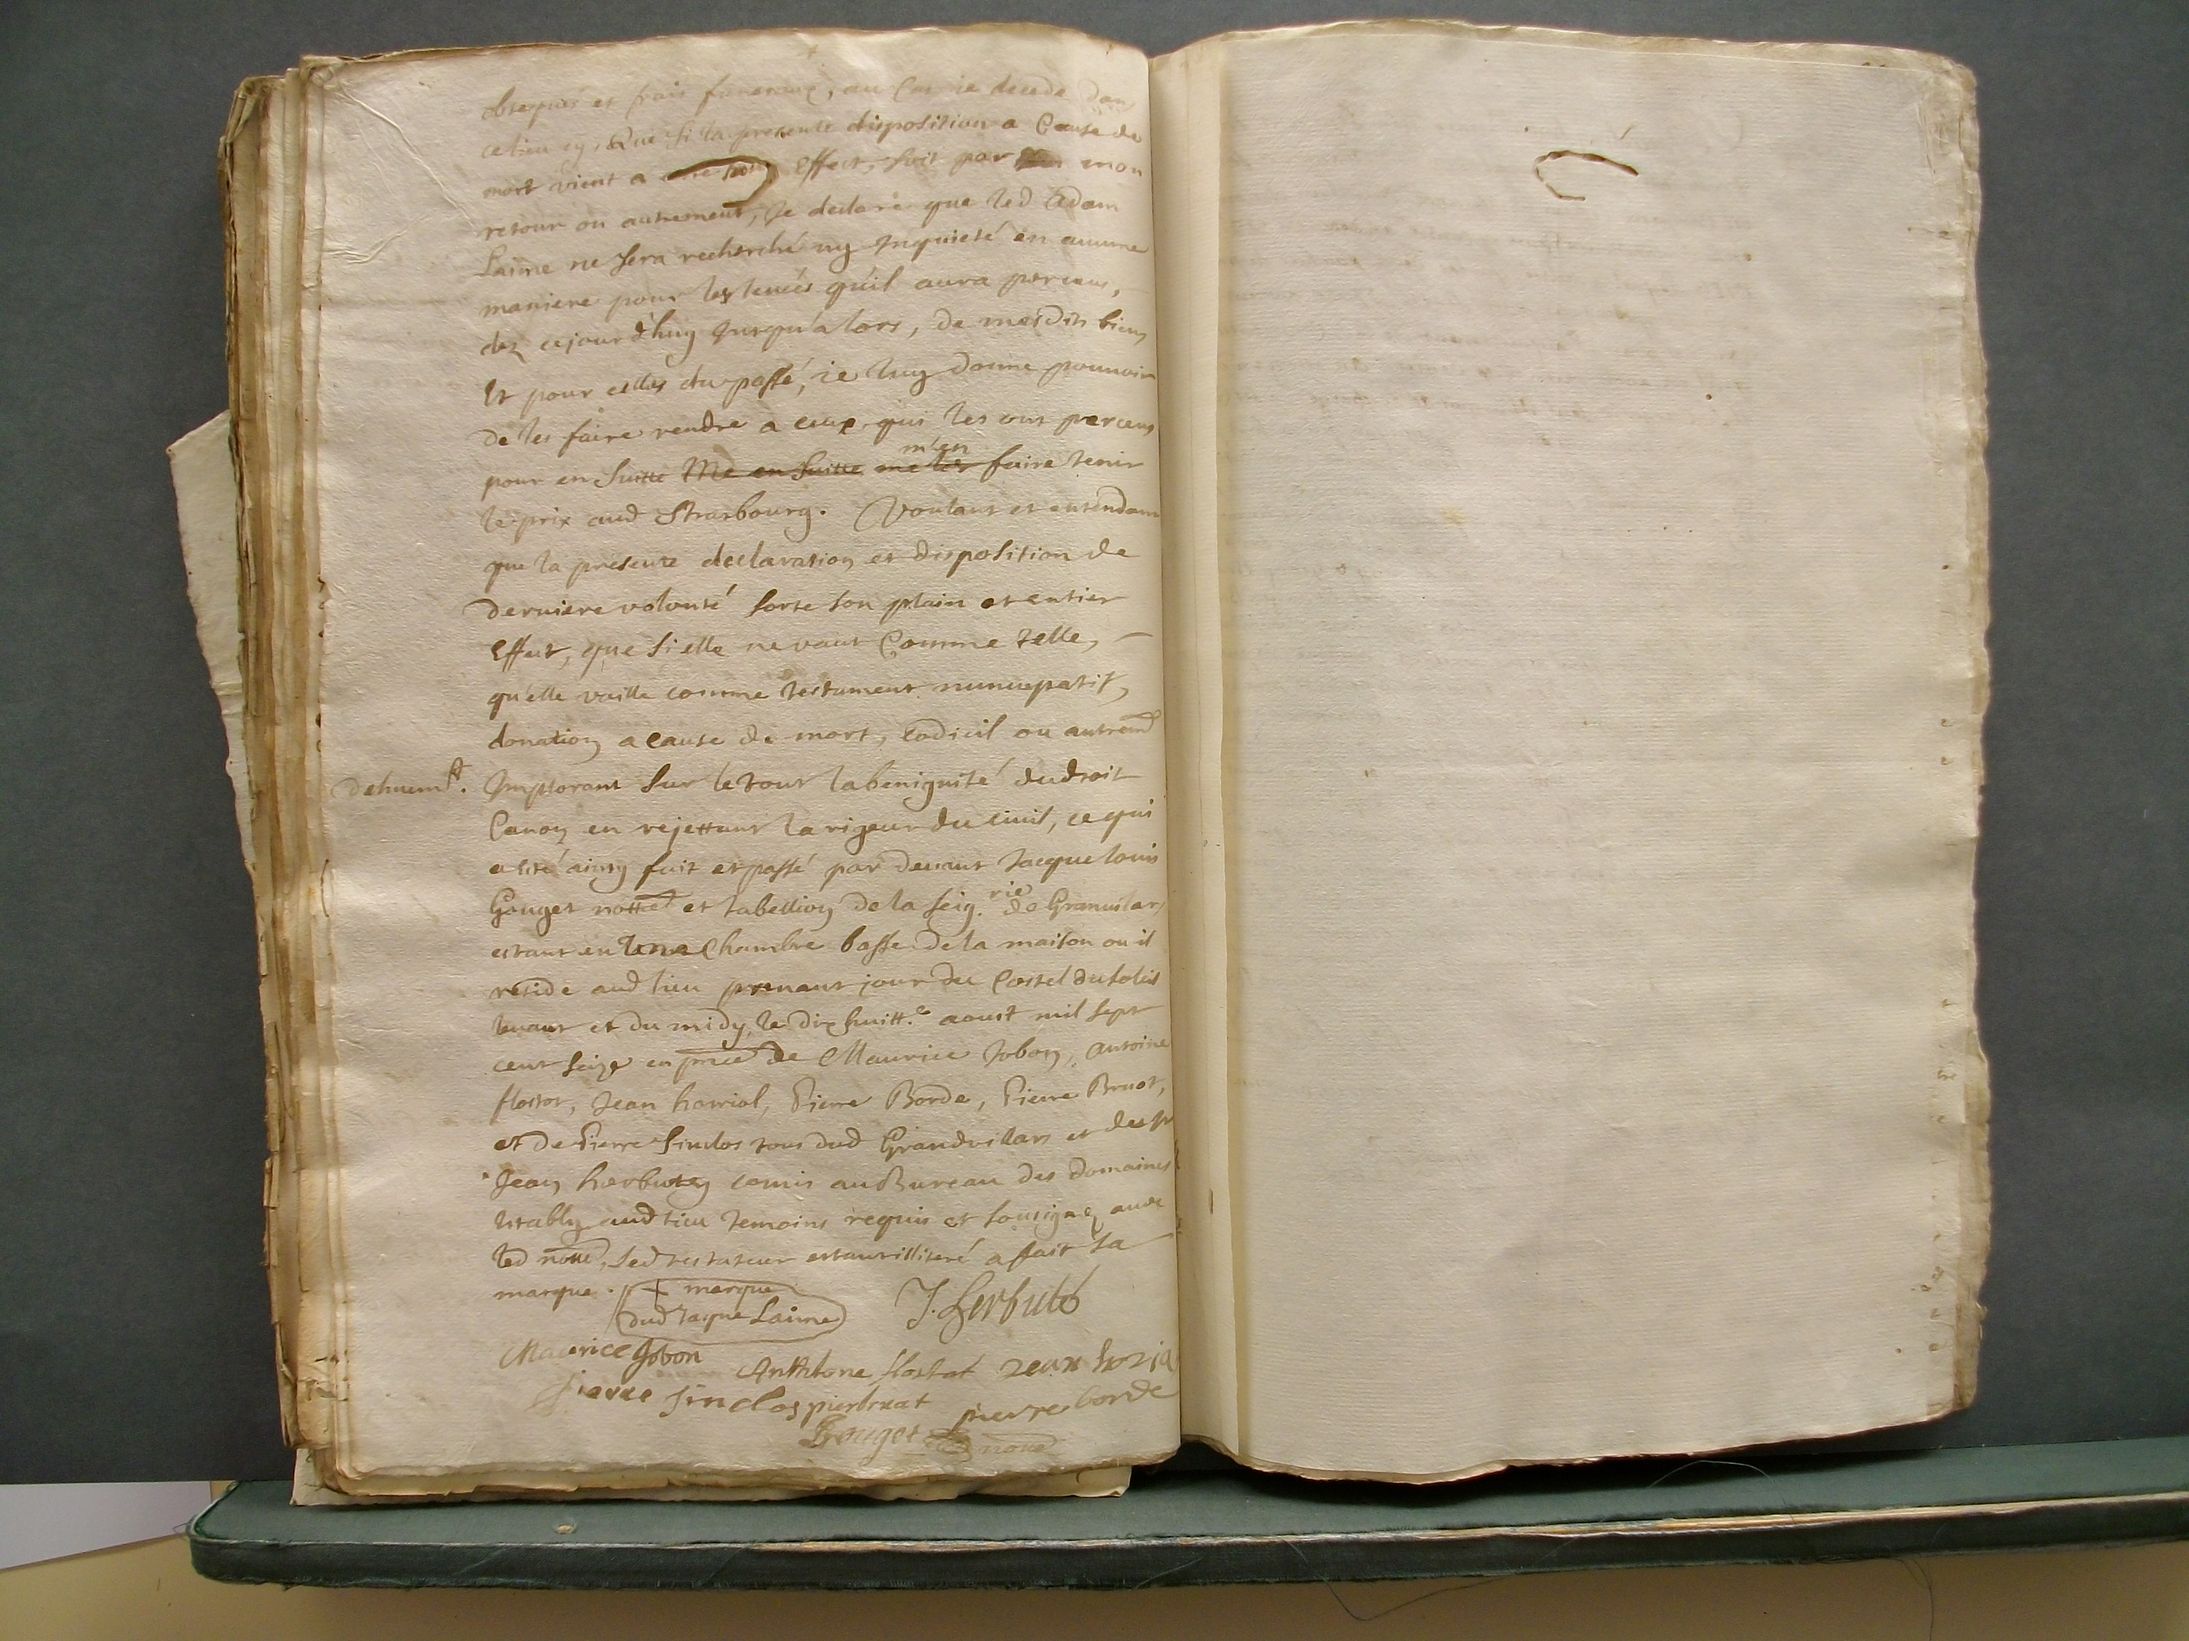 obseques et frais funeraux, au cas ie decede dans
ce lieu cy. Que si la presente disposition a Cause de
mort vient a Effect, soit par mon
retour ou autrement, Je declare que led Adam
Laine ne sera recherché ny Inquieté en aucune
maniere pour les leuées qu'il aura perceus,
dez cejourd'huy Jusqu'alors, de mesdits biens
Et pour celles du passé, ie luy donne pouuoir
de les faire rendre a ceux qui les ont perceus
pour en suitte Me en suitte me les m'en faire tenir
le prix aud Strasbourg. Voulant et entendant
que la presente declaration et disposition de
derniere volonté sorte son plain et entier
Effect, que si elle ne vaut Comme telle,
qu'elle vaille comme testament nuncupatif,
donation a cause de mort, codicil ou autremt
dehuemt. Implorant sur le tout la benignité du droit
Canon en rejettant la rigeur du ciuil, ce qui
a esté ainsy fait et passé par deuant Jacque louis
Gouget nottre et tabellion de la seig.rie de Granuilars
estant en une Chambre basse de la maison ou il
reside aud lieu prenant jour du Costel du soleil
leuant et du midy, le dix huitt.e aoust mil sept
cent seize en pnce de Maurice Jobon, Antoine
flostat, Jean horriol, Pierre Borde, Pierre Bruot,
et de Pierre Sinclos tous dud Grandvilars et du Sr
Jean herbutey comis au Bureau des domaines
Establÿ aud lieu temoins requis et sousignez auec
led nottre, led testateur estant illiteré a fait sa
marque. + marque
dud Jaque Laine J. Herbuté
Maurice Jobon Anthtone flostat Jean horia
pierre sinclos pierbruat pierre borde
Gouget nottre